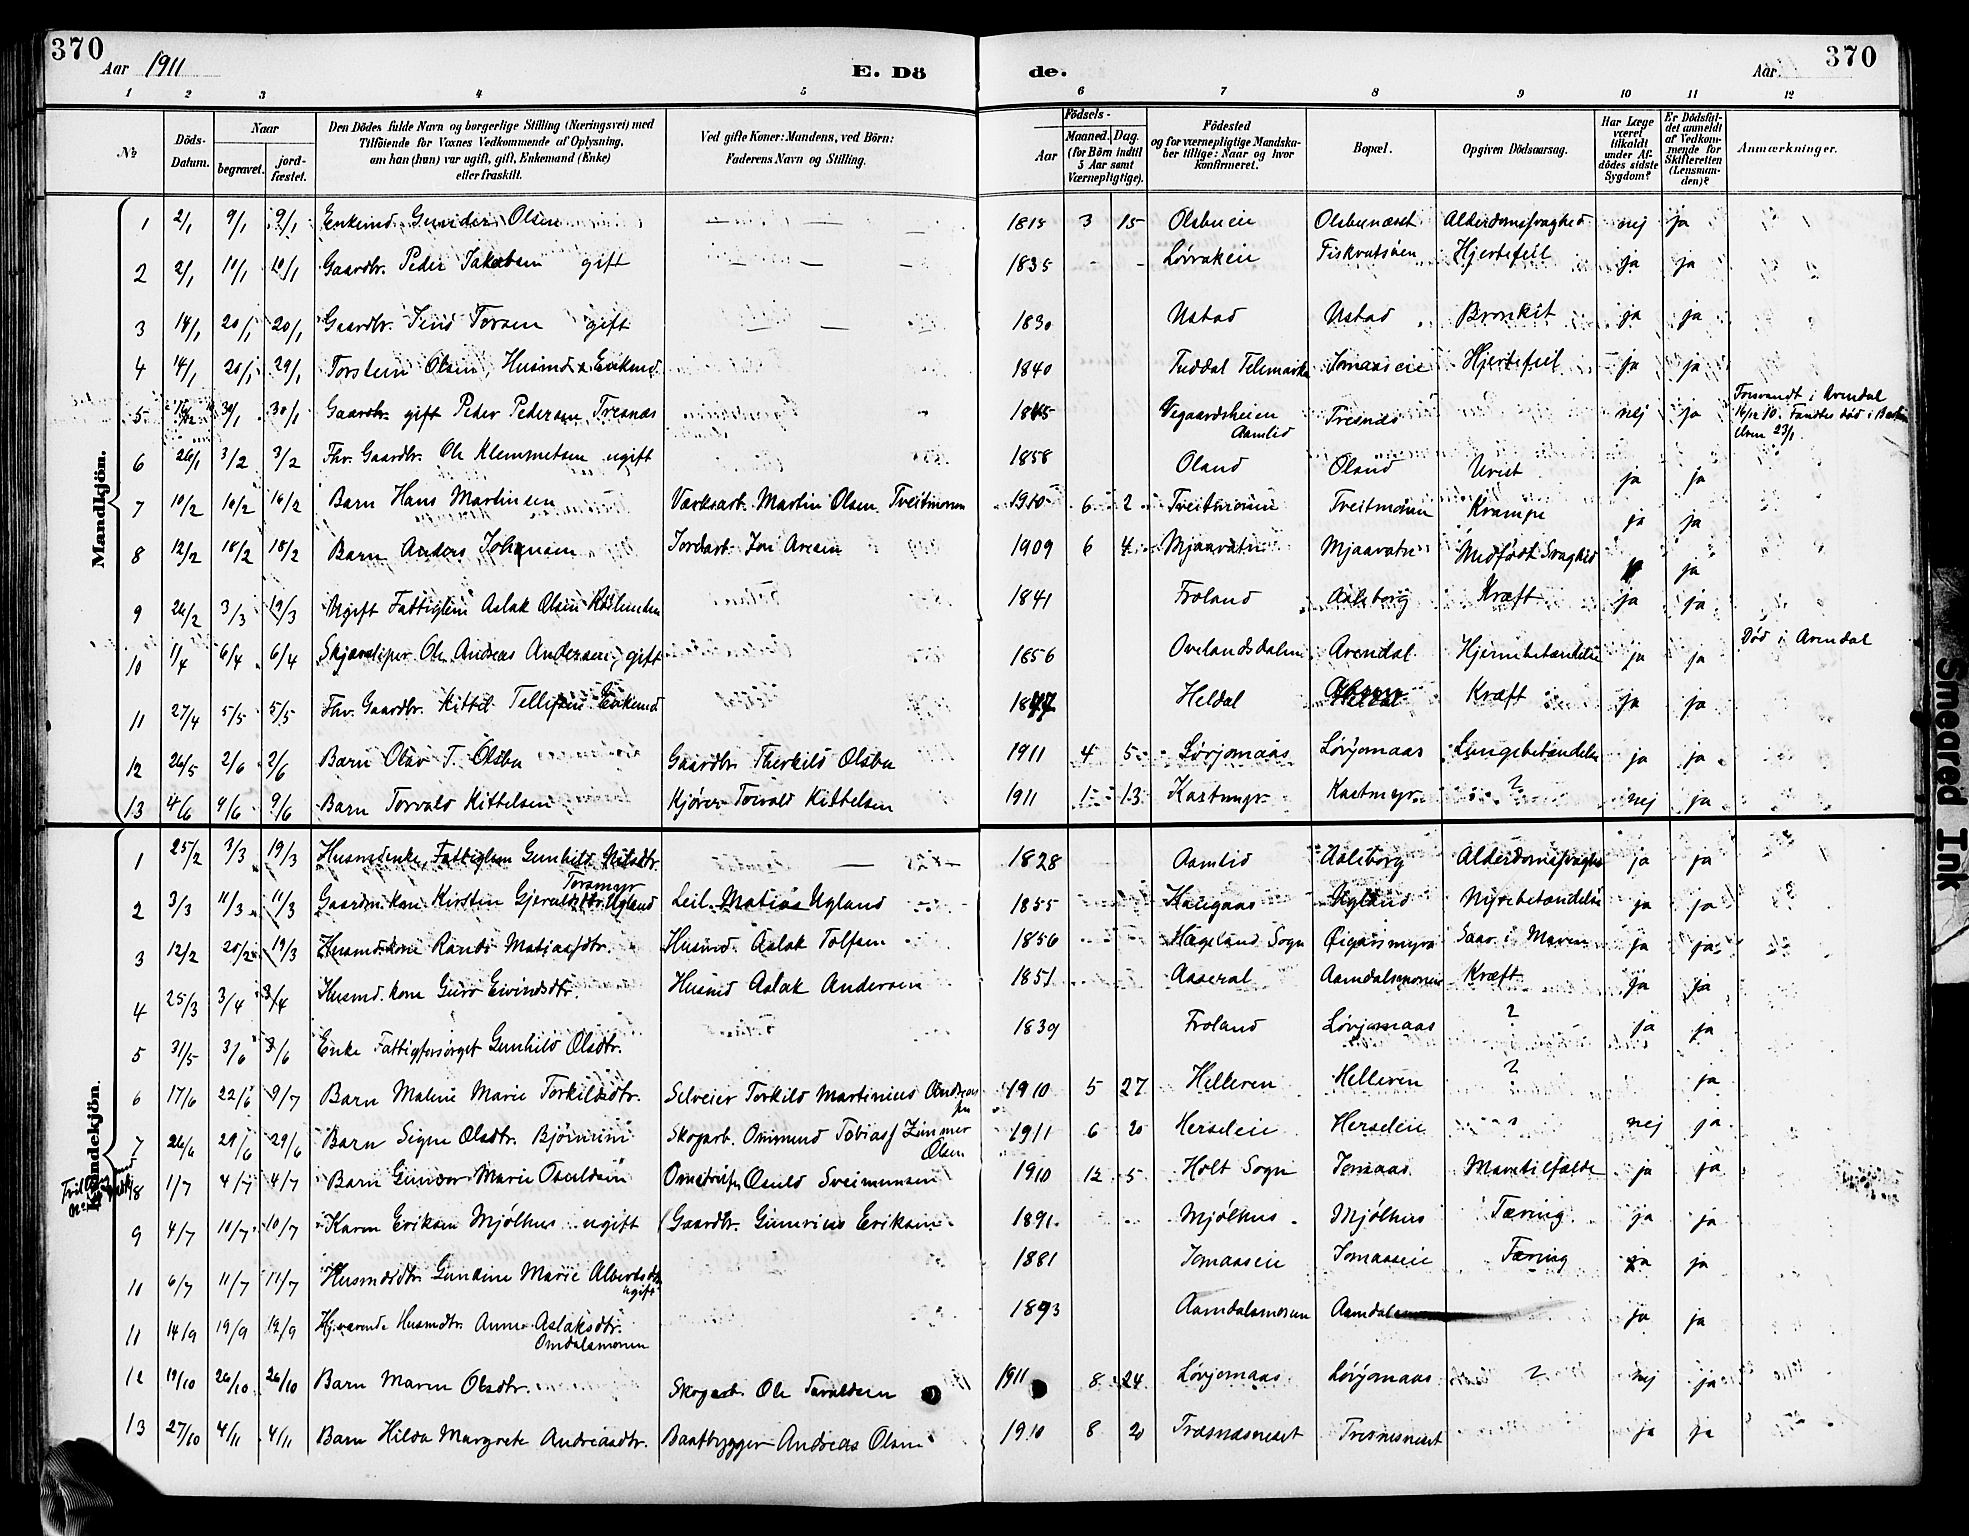 370
Aar 1911
E. Döde.
Aar
370
1 2 3 4 5 6 7 8 9 10 11 12
№
Döds-Datum.
Naar
begravet.
jordfæstet.
Den Dödes fulde Navn og borgerlige Stilling (Næringsvei) med
Tilföiende for Voxnes Vedkommende af Oplysning,
om han (hun) var ugift, gift, Enkemand (Enke)
eller fraskilt.
Ved gifte Koner: Mandens, ved Börn:
Faderens Navn og Stilling.
Födsels-
Aar
Maaned. Dag.
(for Börn indtil
5 Aar samt
Værnepligtige).
Födested
og for værnepligtige Mandskaber tillige: Naar og hvor
konfirmeret.
Bopæl.
Opgiven Dödsaarsag.
Har Læge været tilkaldt under Afdödes sidste Sygdom?
Er Dödsfaldet anmeldt af Vedkommende for Skifteretten (Lensmanden)?
Anmærkninger.
Mandkjön.
1 2/1 9/1 9/1 Enkemd. Gunder Olsen — — 1815 3 15 Olsbueie Olsbunæset Alderdomssvaghed nej ja
2 2/1 10/1 10/1 Gaardbr. Peder Jakobsen gift — — 1835 - - Løvrakeie Fiskvatsøen Hjertefeil ja ja
3 14/1 20/1 20/1 Gaardbr. Jens Torsen gift — — 1830 Ustad Ustad Bronkit ja ja
4 14/1 20/1 29/1 Torstein Olsen, Husmd. Enkemd. 1840 Tuddal Telemarken Jomaaseie Hjertefeil ja ja
5 16/12 30/1 30/1 Gaardbr. gift Peder Pedersen Tresnæs 1845 Vegaardsheien Aamlid Tresnæs nej ja Forsvandt i Arendal
16/12 10. Fandtes død i
elven 23/1.
6 26/1 3/2 3/2 Fhv. Gaardbr. Ole Klemmetsen ugift 1858 Oland Oland Uvist ja ja
7 10/2 16/2 16/2 Barn Hans Martinsen Værksarb. Martin Olsen Tveitmoen 1910 6 2 Tveitmoen Tveitmoen Krampe ja ja
8 12/2 18/2 18/2 Barn Anders Johansen Jordarb. Jon Aresen 1909 6 4 Mjaavatn Mjaavatn Medfødt Svaghed ja
9 26/2 3/3 19/3 Ugift Fattiglem Aslak Olsen 1841 Froland Aalsborg Kræft ja ja
10 1/4 6/4 6/4 Skjærsliper Ole Andreas Andersen, gift 1856 Ovelandsdalen Arendal Hjernebetændelse ja ja Død i Arendal
11 27/4 5/5 5/5 Fhv. Gaardbr. Kittil Tellefsen Enkemd 1847 Heldal Kræft ja ja
12 26/5 2/6 2/6 Barn Olav T. Olsbu Gaardbr. Therkild Olsbu 1911 4 5 Løvjomaas Løvjomaas Lungebetændelse ja ja
13 4/6 9/6 9/6 Barn Torvald Kittelsen Kjører Torvald Kittelsen 1911 1 13 Kastmyr Kastmyr ? nej ja
Kvindekjön.
1 25/2 3/3 19/3 Husmdenke, Fattiglem Gunhild Nilsdtr. — 1828 Aamlid Aalsborg Alderdomssvaghed ja ja
2 3/3 11/3 11/3 Gaardm.kone Kirstin Gjeruldsdtr. Torsmyr Ugland Leil. Matias Ugland 1855 Haugaas Ugland Nyrebetændelse ja ja
3 12/2 20/2 19/3 Husmd.kone Randi Matiasdtr. Husmd. Aslak Tolfsen 1856 Hægeland Sogn Saar i Maven ja ja
4 25/3 3/4 3/4 Husmd.kone Guro Eivindsdtr. Husmd Aslak Andersen 1851 Aaseral Aamdalsmoen Kræft ja ja
5 31/5 3/6 3/6 Enke Fattigforsørget Gunhild Olsdtr. 1839 Froland Løvjomaas ? ja ja
6 17/6 22/6 9/7 Barn Malene Marie Torkilsdtr. Selveier Torkild Martinius Andreassen 1910 5 27 Helleren Helleren ? ja
7 26/6 29/6 29/6 Barn Signe Olsdtr. Bjørnum Skogarb. Ommund Tobiass Zimmer Olsen 1911 6 20 Herseleie Herseleie nej ja
8 1/7 4/7 4/7 Barn Gunvor Marie Osuldsen Osuld Sveinunsen 1910 12 5 Holt Sogn Jomaas Mavetilfælde ja ja
9 4/7 10/7 10/7 Karen Eriksen Mjølhus ugift (Gaardbr. Gunvius Eriksen 1891 Mjølhus Mjølhus Tæring ja ja
10 6/7 11/7 11/7 Husmdsdtr. Gundine Marie Albertsdtr. ugift 1881 Jomaaseie Jomaaseie Tæring ja ja
11 14/9 19/9 19/9 Hj.værende Husmdtr. Anne Aslaksdtr. Omdalsmoen 1893 Aamdalsmoen ja ja
12 19/10 26/10 26/10 Barn Maren Olsdtr. Skogarb. Ole Taraldsen 1911 8 24 Løvjomaas Løvjomaas ? nej ja
13 27/10 4/11 4/11 Barn Hilda Margrete Andreasdtr. Baatbygger Andreas Olsen 1910 8 20 Træsnæsneset Tresnesneset ja ja
Smeared Ink